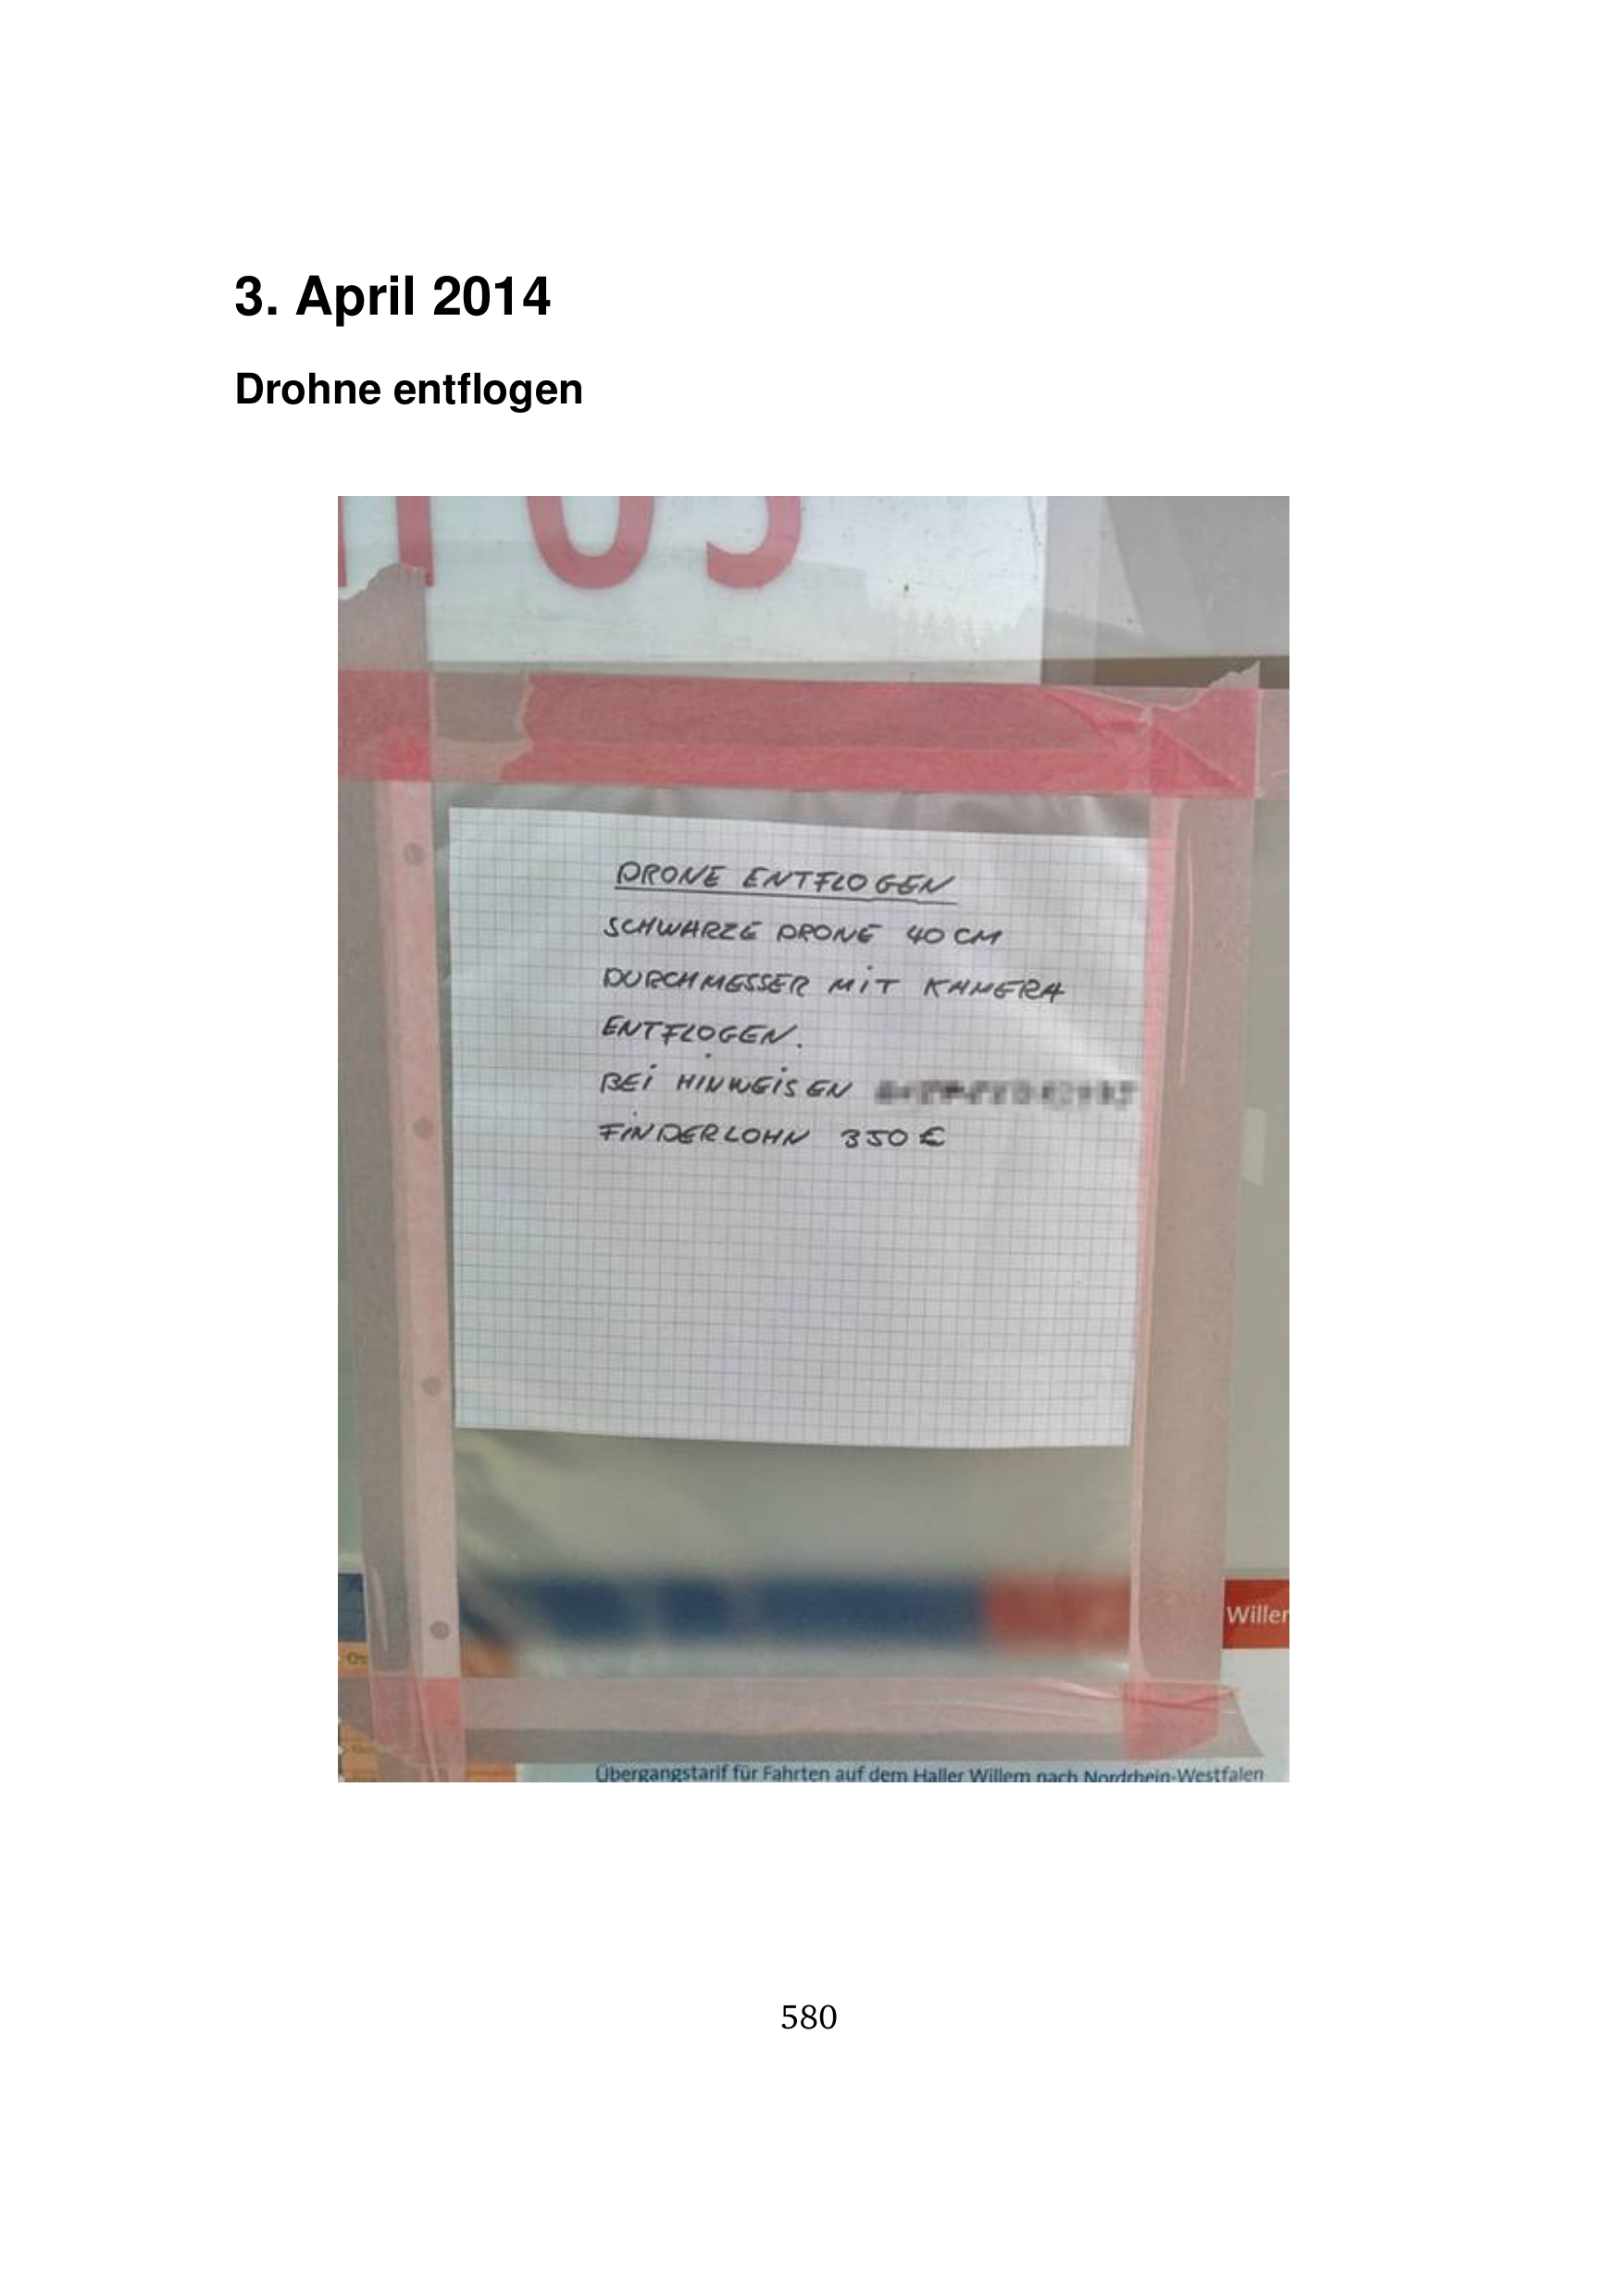 3. April 2014
Drohne entflogen
DRONE ENTFLOGEN
SCHWARZE DRONE 40 CM
DURCHMESSER MIT KAMERA
ENTFLOGEN.
BEI HINWEISEN
FINDERLOHN 350 €
Willem
Übergangstarif für Fahrten auf dem Haller Willem nach Nordrhein-Westfalen
580